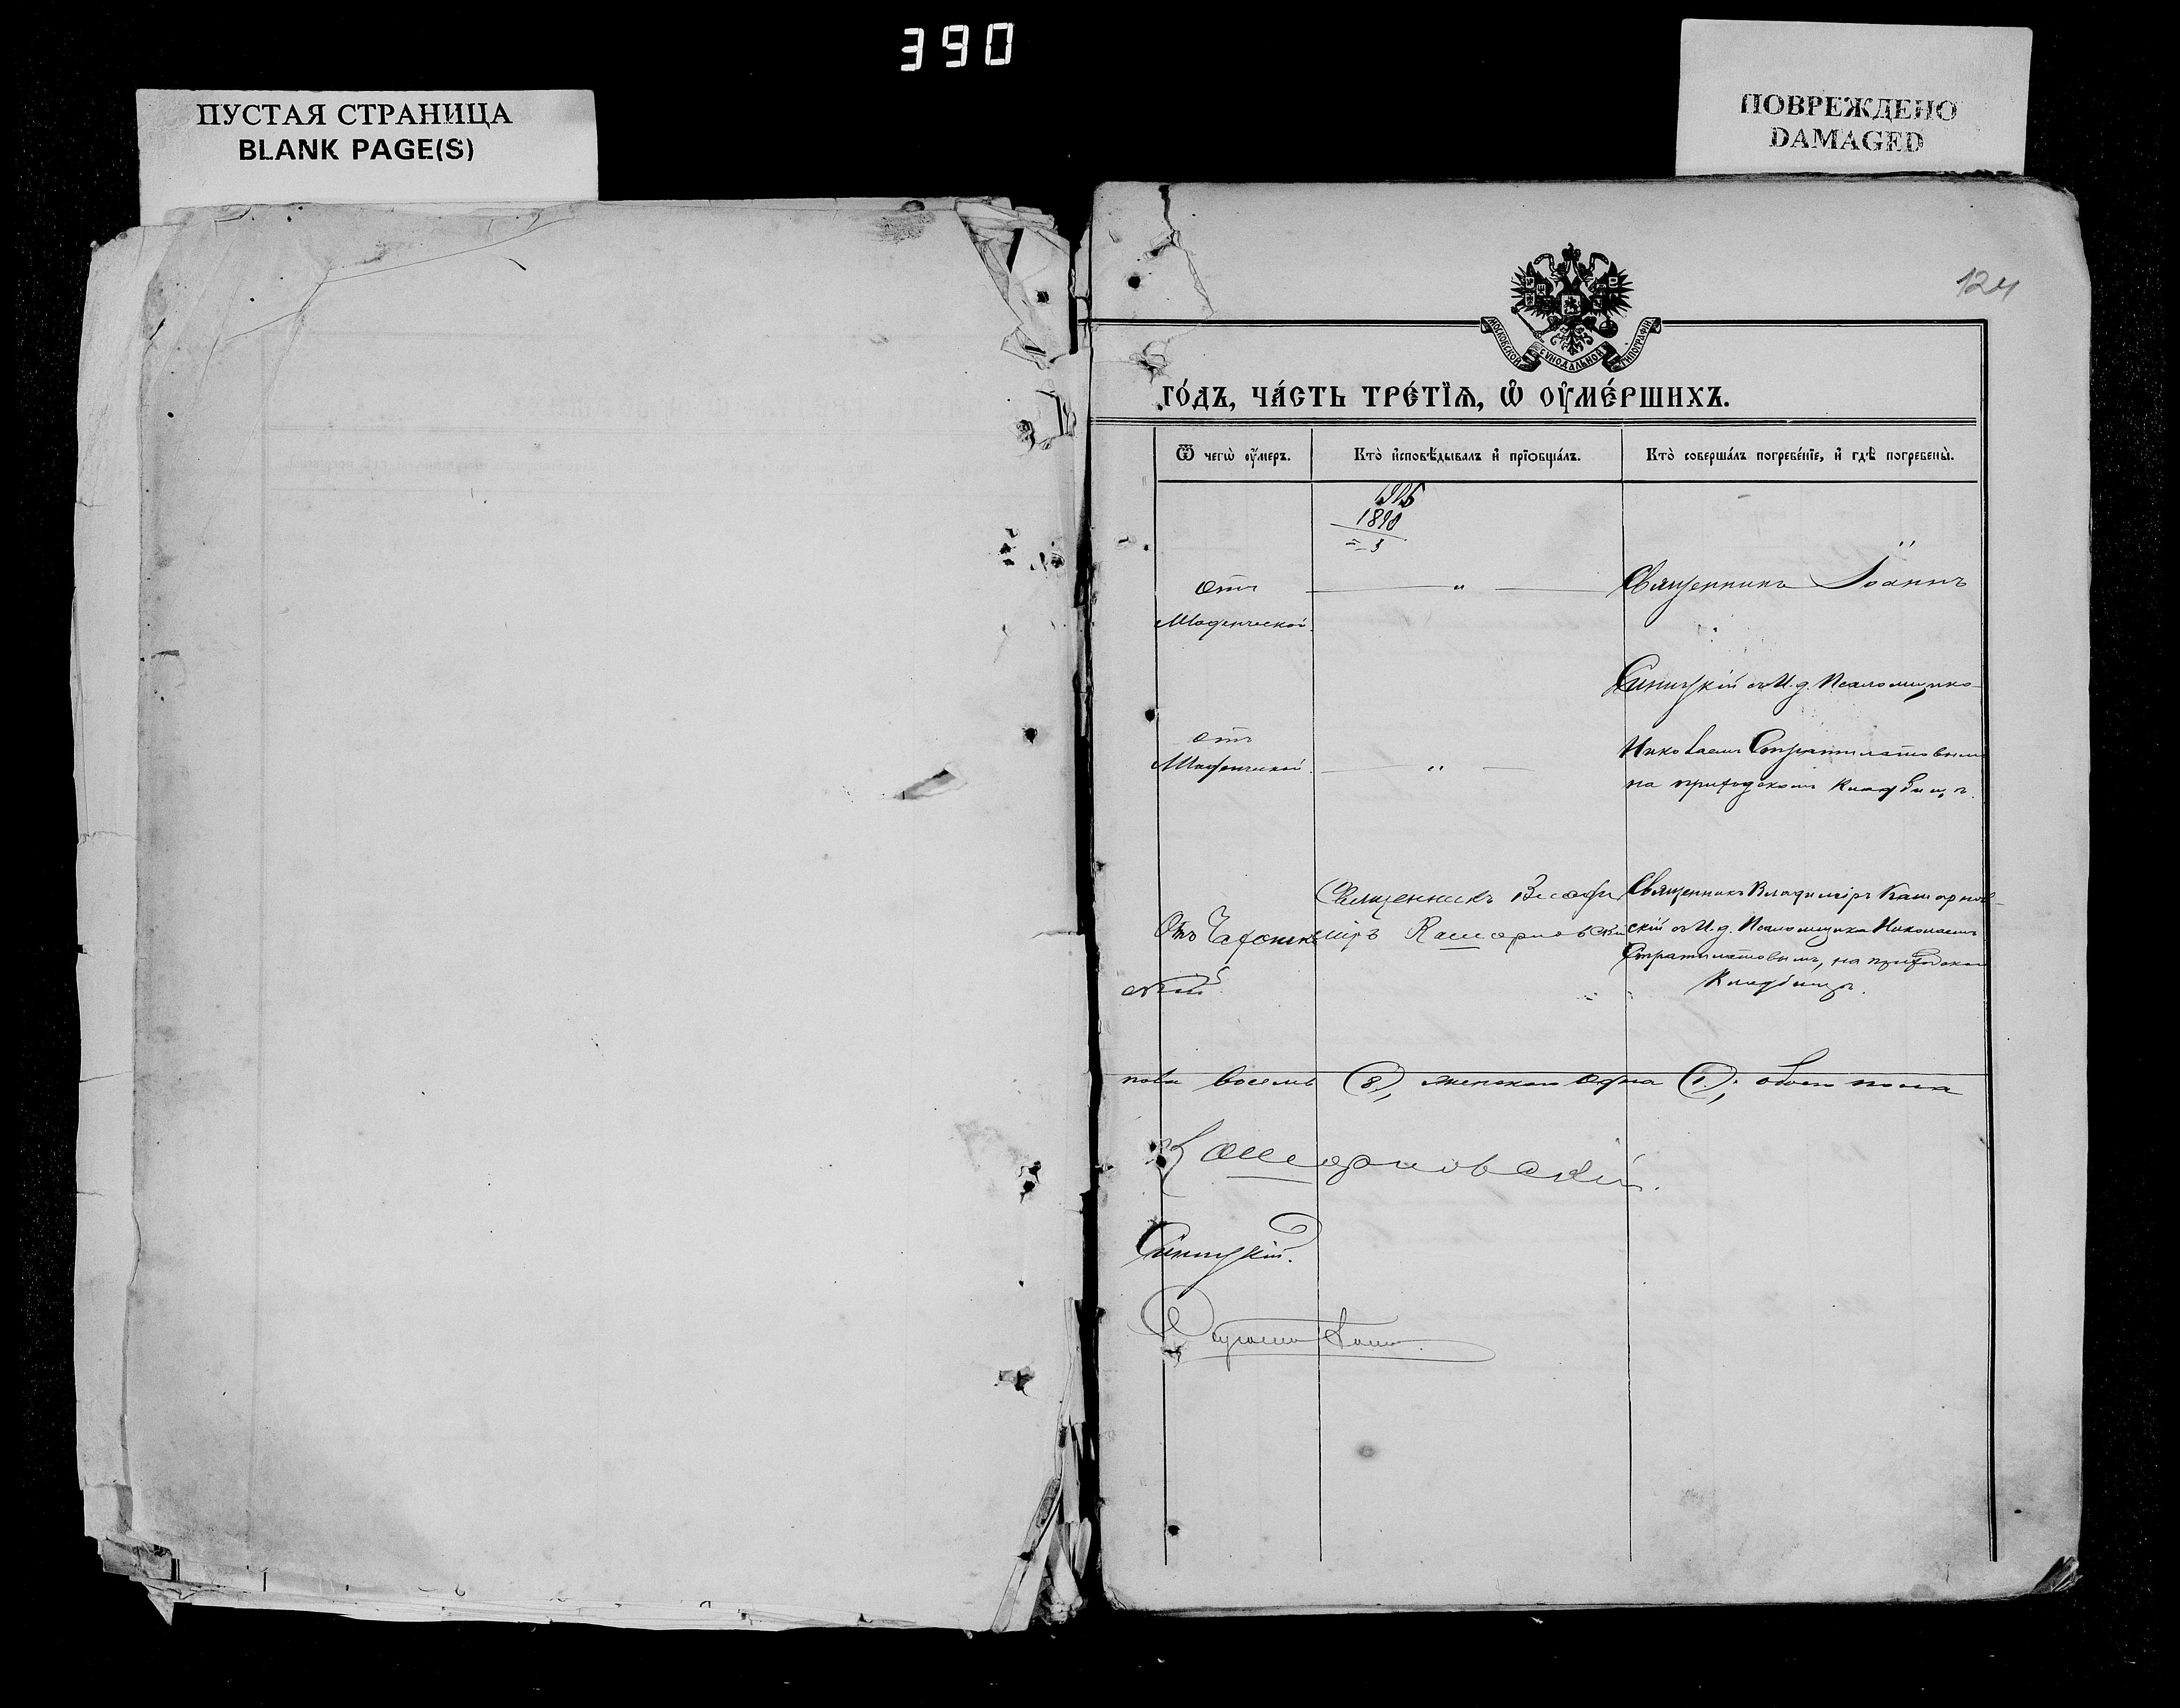 390
ПУСТАЯ СТРАНИЦА
BLANK PAGE(S)
ПОВРЕЖДЕНО
DAMAGED
124
МОСКОВСКОЙ СѴНОДАЛЬНОЙ ТИПОГРАФІИ
го́дъ, ча́сть тре́тїѧ, ѡ҆ ᲂу҆ме́ршихъ.
Ѿ чегѡ̀ ᲂу҆́меръ.
Кто̀ и҆сповѣ́дывалъ и҆ прїѡбща́лъ.
Кто̀ соверша́лъ погребе́нїе, и҆ гдѣ̀ погребены̀.
1905
1890
отъ
Младенческой.
"
Священникъ Іоаннъ
Синицкій съ И. д. Псаломщика
Николаемъ Стратилатовымъ
на приходскомъ кладбищѣ.
отъ
Младенческой.
"
Отъ Чахотки
Священникъ Влади
міръ Кашарновскій
Священникъ Владиміръ Кашарнов-
скій съ И. д. Псаломщика Николаемъ
Стратилатовымъ, на приходском
Кладбищѣ.
пола восемь (8), женскаго одна (1); обоего пола
Кашарновскій.
Синицкій.